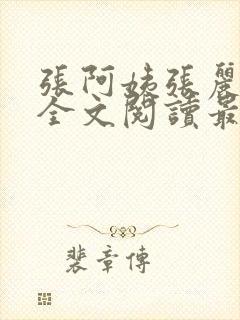 張阿姨張麗
全文閱讀最
裴章傳